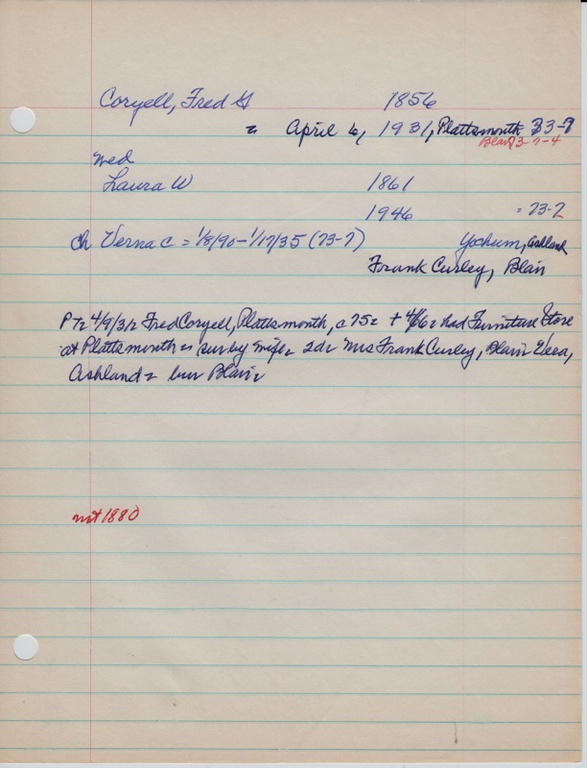 Coryell, Fred G 1856
= April 6, 1931, Plattsmouth 33-7
Blair 3-7-4
wed
Laura W 1861
1946 = 73-7
ch Verna C = 1/8/90-1/17/35 (73-7) Yochum, Ashland
Frank Curley, Blair
P Tr 4/9/31 = Fred Coryell, Plattsmouth, a 75 = + 4/6 = had Furniture Store
at Plattsmouth = sur by wife = 2 d = Mrs Frank Curley, Blair = Vera,
Ashland = bur Blair =
not 1880